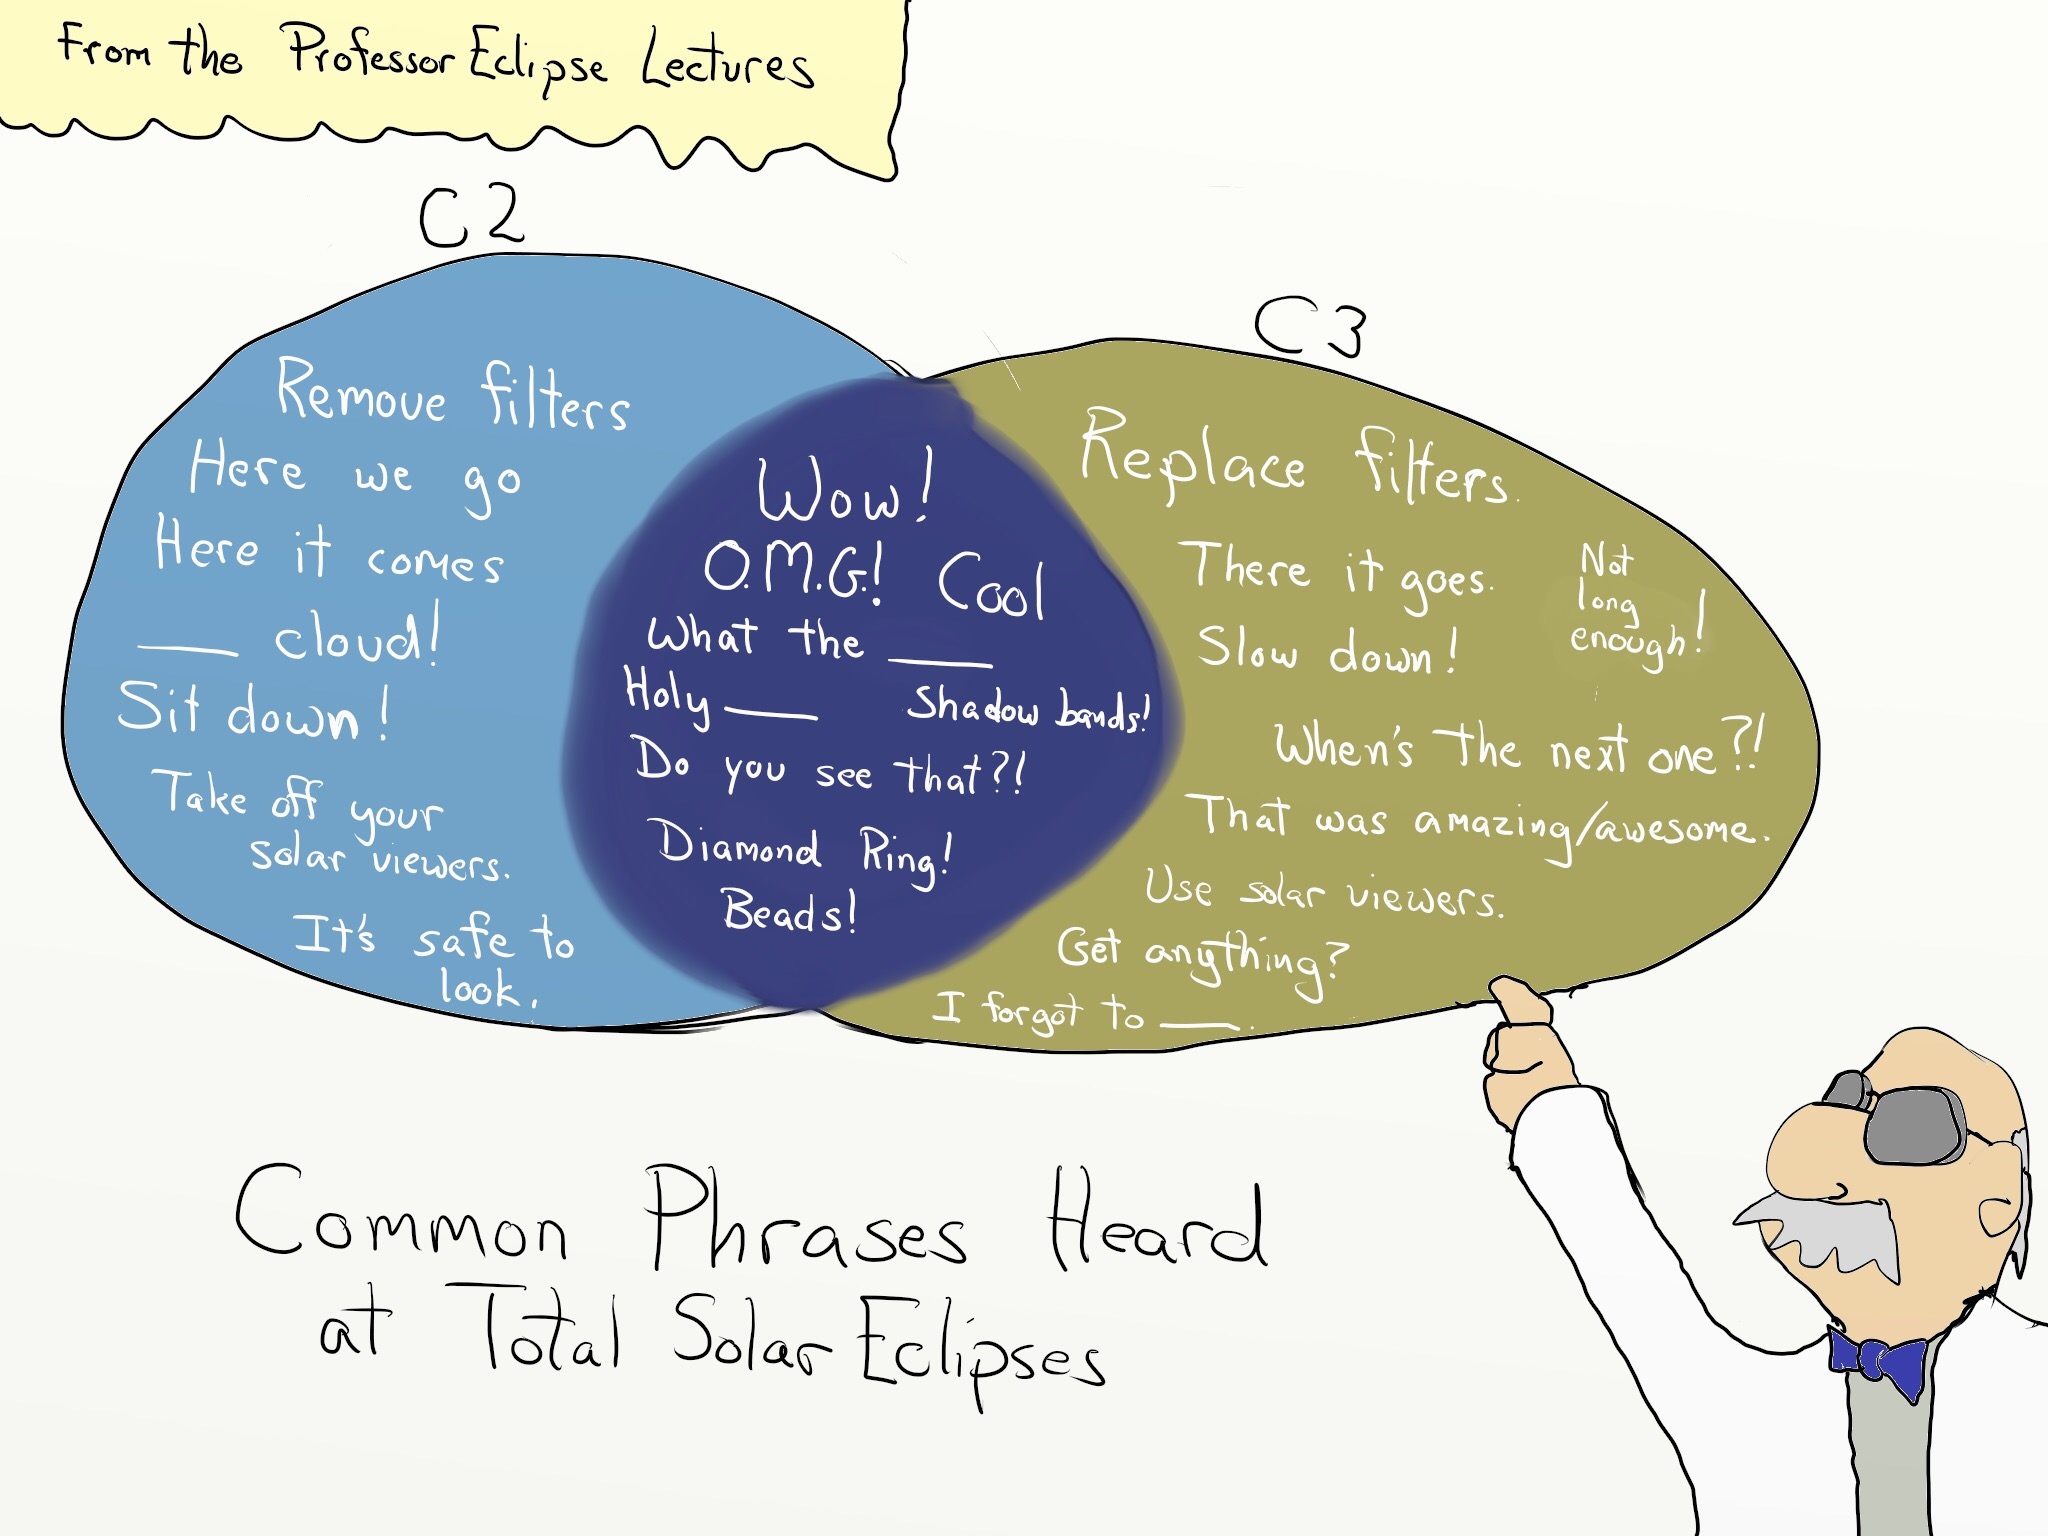 From the Professor Eclipse Lectures
C2
C3
Remove filters
Here we go
Here it comes
____ cloud!
Sit down!
Take off your
solar viewers.
It's safe to
look.
Wow!
O.M.G.! Cool
What the ____
Holy ____ Shadow bands!
Do you see that?!
Diamond Ring!
Beads!
Replace filters.
There it goes.
Not
long
enough!
Slow down!
When's the next one?!
That was amazing/awesome.
Use solar viewers.
Get anything?
I forgot to ____.
Common Phrases Heard
at Total Solar Eclipses